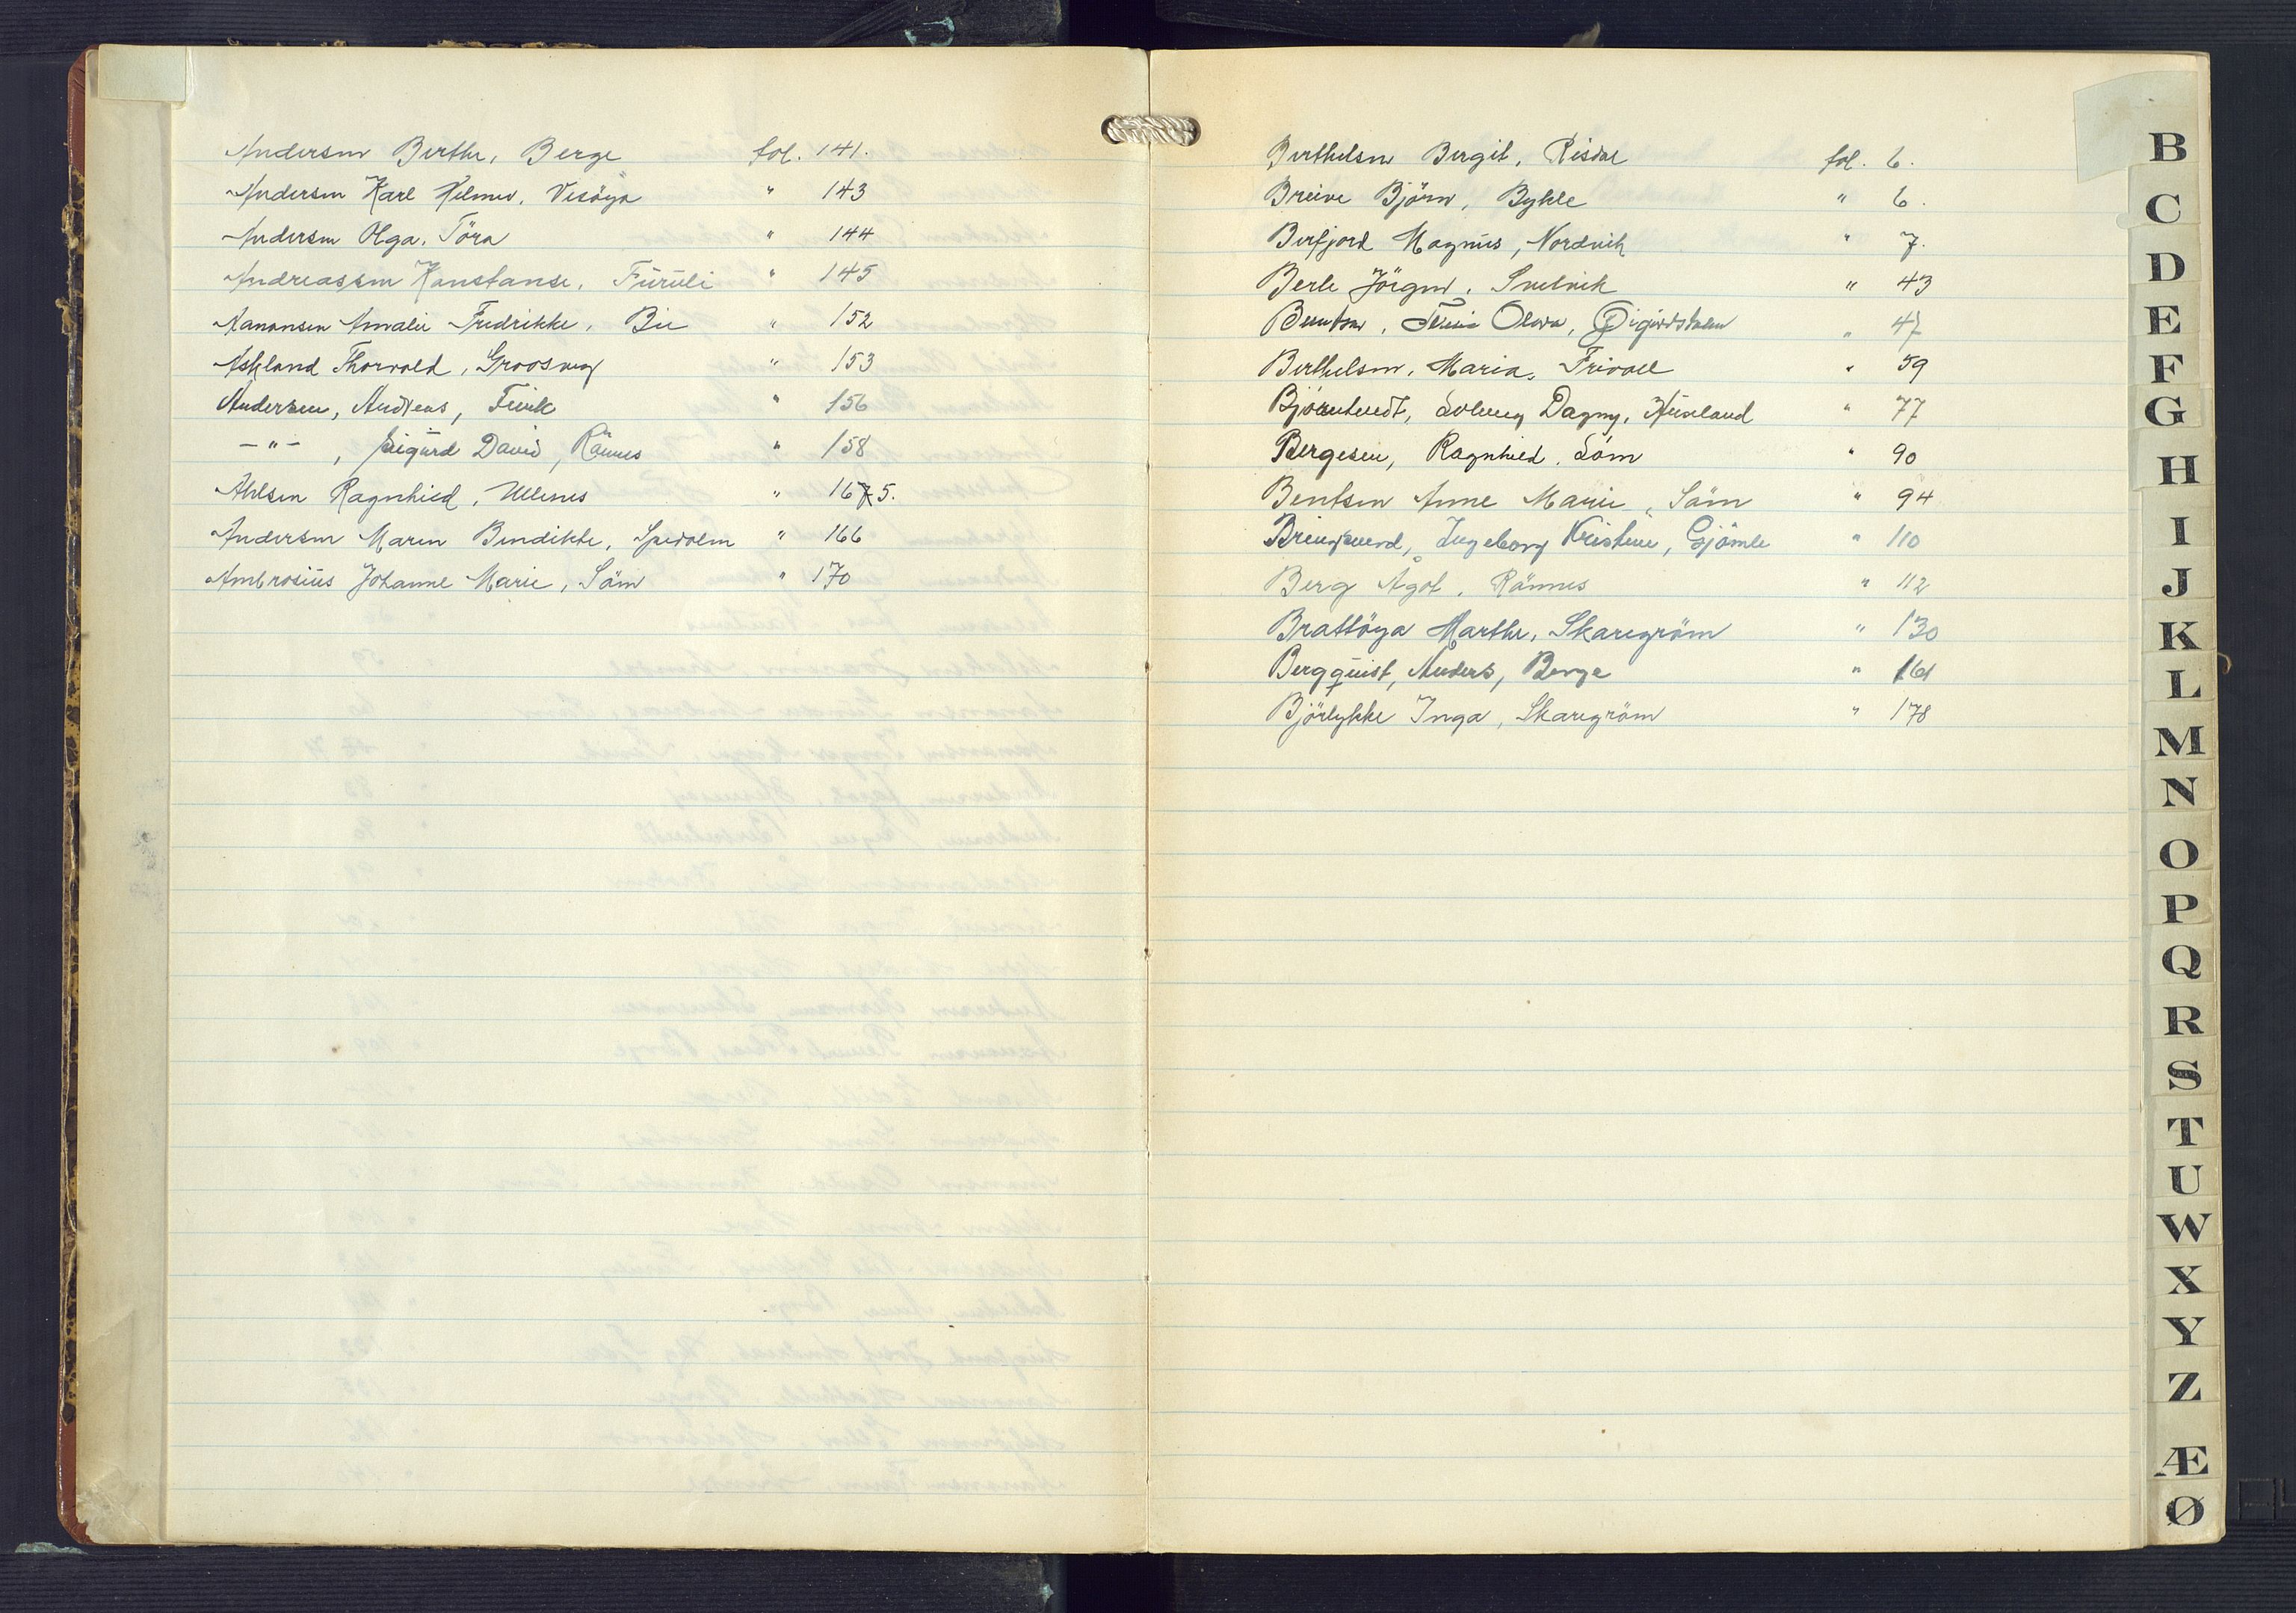 Andersen Berthe, Berge fol. 141.
Andersen Karl Helmer, Vesöya " 143
Andersen Olga, Töra " 144
Andreassen Konstanse, Furuli " 145
Aanonsen Amalie Fredrikke, Bie " 152
Askland Thorvald, Groosveg " 153
Andersen, Andreas, Fevik " 156
– " – , Sigurd David, Rännes " 158
Ahlsen Ragnhild, Ullenes " 165.
Andersen Maren Bendikke, " 166
Ambrosius Johanne Marie, Söm " 170
Berthelsen Birgit, Risdal fol. 6.
Breive Björn, Bykle " 6.
Berfjord Magnus, Nordvik " 7.
Berle Jörgen, Snelvik " 43
Berntsen, Olava, " 47
Berthelsen, Maria, Frivoll " 59
Björnstvedt, Solveig Dagny, " 77
Bergesen, Ragnhild, Söm " 90
Bentsen Anne Marie, Söm " 94
Bringsverd, Ingeborg Kristine, Gjömle " 110
Berg Ågot, Rännes " 112
Brattöya Marthe, Skaregröm " 130
Bergquist, Anders, Berge " 161
Björlykke Inga, Skaregröm " 178
B
C
D
E
F
G
H
I
J
K
L
M
N
O
P
Q
R
S
T
U
W
X
Y
Z
Æ
Ø